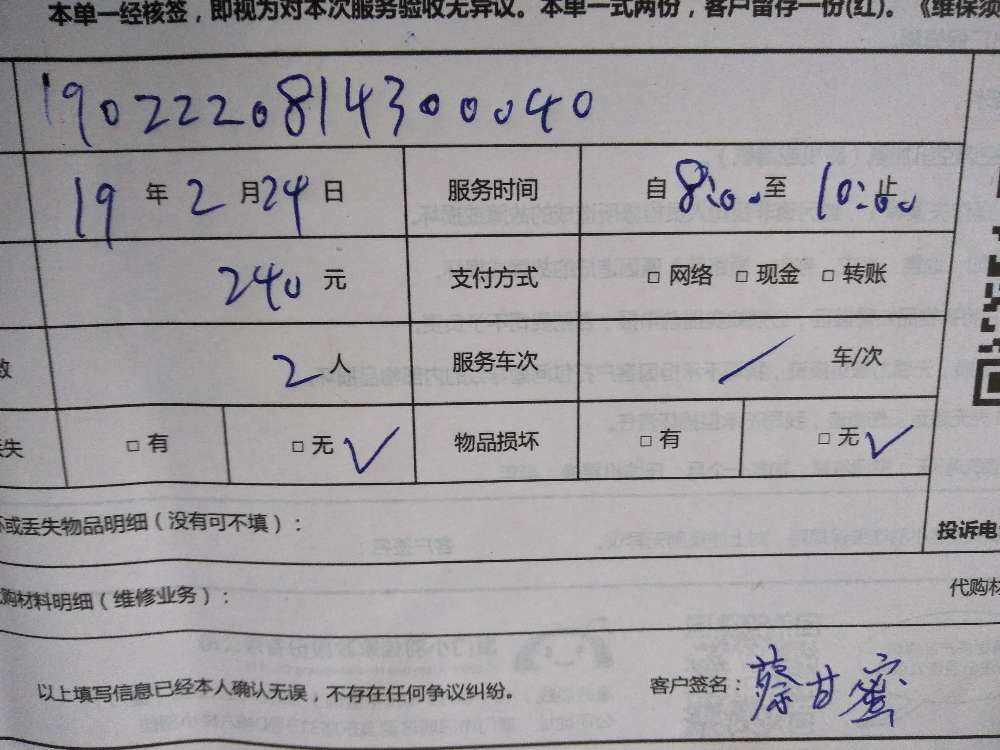 本单一经核签，即视为对本次服务验收无异议。本单一式两份，客户留存一份(红)。《维保须
190222081430040
19 年 2 月 24 日 服务时间 自 8:00 至 10:00 止
240 元 支付方式 □ 网络 □ 现金 □ 转账
数 2 人 服务车次 / 车/次
丢失 □ 有 □ 无 √ 物品损坏 □ 有 □ 无 √
坏或丢失物品明细（没有可不填）：
投诉电
购材料明细（维修业务）：
代购材
以上填写信息已经本人确认无误，不存在任何争议纠纷。 客户签名：蔡甘蜜